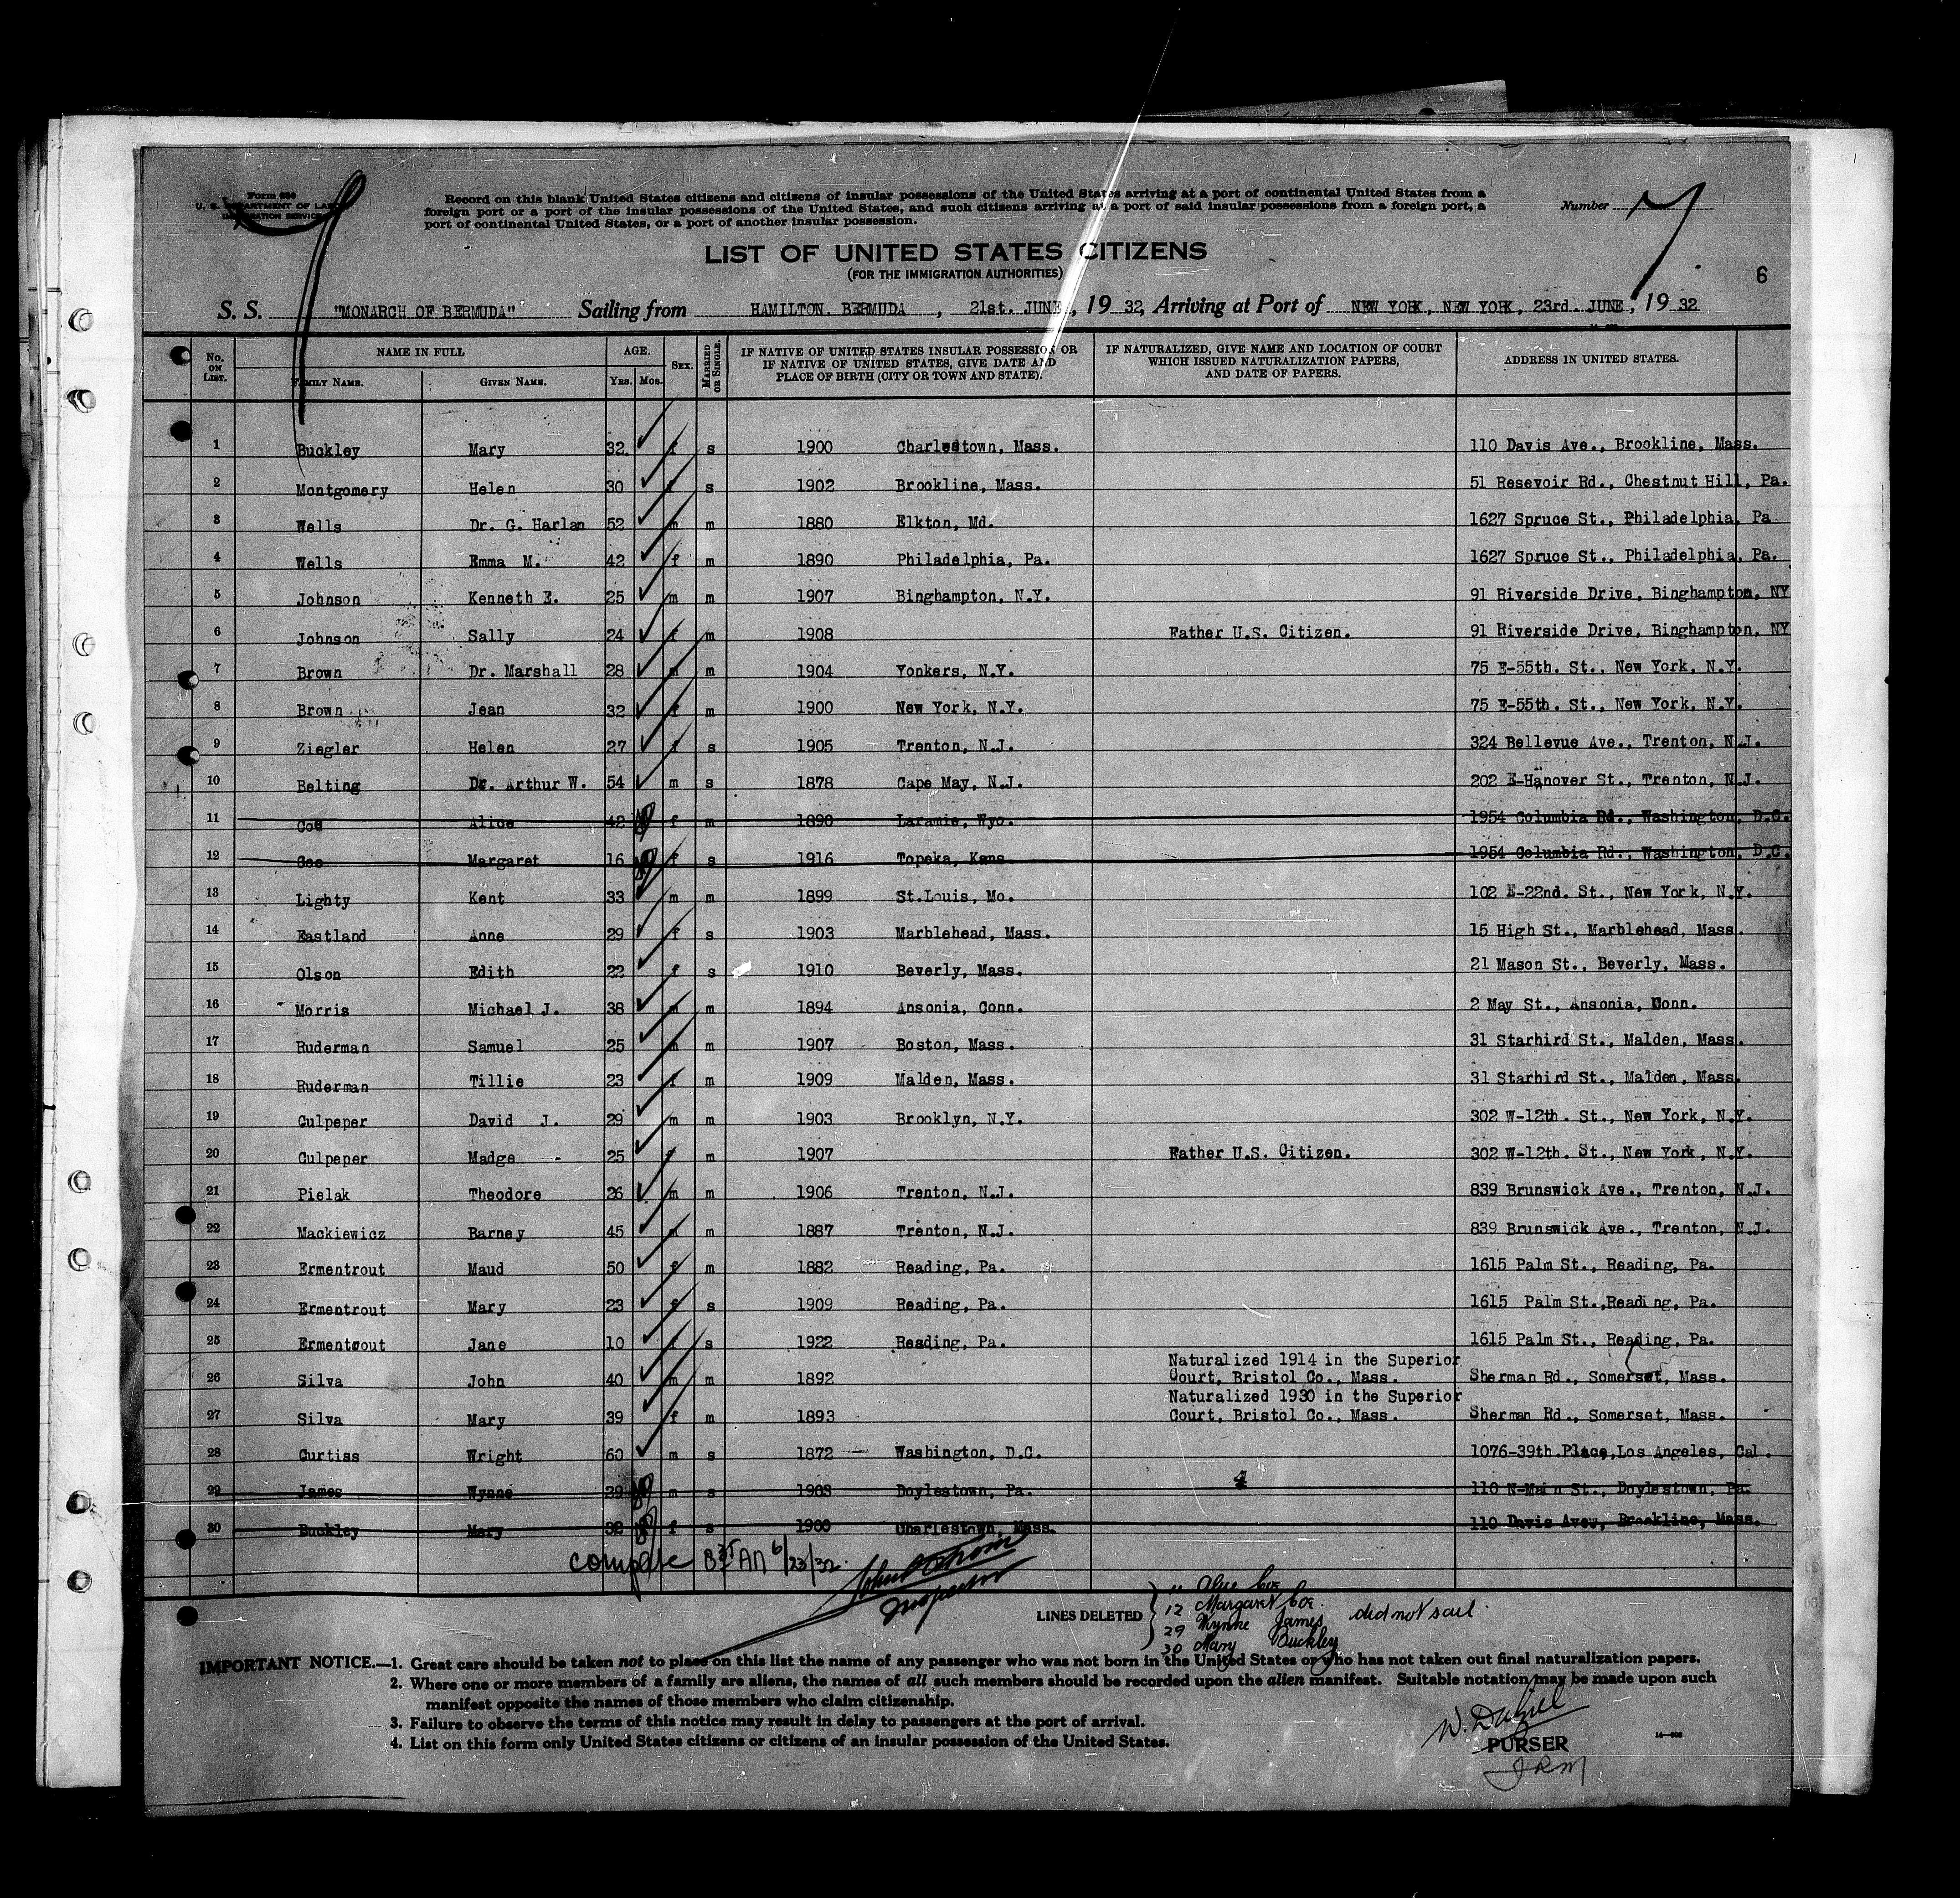 Form 630
U. S. DEPARTMENT OF LABOR
IMMIGRATION SERVICE
Record on this blank United States citizens and citizens of insular possessions of the United States arriving at a port of continental United States from a
foreign port or a port of the insular possessions of the United States, and such citizens arriving at a port of said insular possessions from a foreign port, a
port of continental United States, or a port of another insular possession.
Number 7
LIST OF UNITED STATES CITIZENS
(FOR THE IMMIGRATION AUTHORITIES)
6
S. S. "MONARCH OF BERMUDA" Sailing from HAMILTON. BERMUDA, 21st. JUNE, 19 32, Arriving at Port of NEW YORK, NEW YORK, 23rd. JUNE, 19 32
No. ON LIST. NAME IN FULL FAMILY NAME. GIVEN NAME. AGE. Yrs. Mos. SEX. MARRIED OR SINGLE. IF NATIVE OF UNITED STATES INSULAR POSSESSION OR IF NATIVE OF UNITED STATES, GIVE DATE AND PLACE OF BIRTH (CITY OR TOWN AND STATE). IF NATURALIZED, GIVE NAME AND LOCATION OF COURT WHICH ISSUED NATURALIZATION PAPERS, AND DATE OF PAPERS. ADDRESS IN UNITED STATES.
1 Buckley Mary 32 f s 1900 Charlestown, Mass. 110 Davis Ave., Brookline, Mass.
2 Montgomery Helen 30 f s 1902 Brookline, Mass. 51 Resevoir Rd., Chestnut Hill, Pa.
3 Wells Dr. G. Harlan 52 m m 1880 Elkton, Md. 1627 Spruce St., Philadelphia, Pa
4 Wells Emma M. 42 f m 1890 Philadelphia, Pa. 1627 Spruce St., Philadelphia, Pa.
5 Johnson Kenneth E. 25 m m 1907 Binghampton, N.Y. 91 Riverside Drive, Binghampton, NY
6 Johnson Sally 24 f m 1908 Father U.S. Citizen. 91 Riverside Drive, Binghampton, NY
7 Brown Dr. Marshall 28 m m 1904 Yonkers, N.Y. 75 E-55th. St., New York, N.Y.
8 Brown Jean 32 f m 1900 New York, N.Y. 75 E-55th. St., New York, N.Y.
9 Ziegler Helen 27 f s 1905 Trenton, N.J. 324 Bellevue Ave., Trenton, N.J.
10 Belting Dr. Arthur W. 54 m s 1878 Cape May, N.J. 202 E-Hanover St., Trenton, N.J.
11 Coe Alice 42 f m 1890 Laramie, Wyo. 1954 Columbia Rd., Washington, D.C.
12 Coe Margaret 16 f s 1916 Topeka, Kans 1954 Columbia Rd., Washington, D.C.
13 Lighty Kent 33 m m 1899 St.Louis, Mo. 102 E-22nd. St., New York, N.Y.
14 Eastland Anne 29 f s 1903 Marblehead, Mass. 15 High St., Marblehead, Mass.
15 Olson Edith 22 f s 1910 Beverly, Mass. 21 Mason St., Beverly, Mass.
16 Morris Michael J. 38 m m 1894 Ansonia, Conn. 2 May St., Ansonia, Conn.
17 Ruderman Samuel 25 m m 1907 Boston, Mass. 31 Starbird St., Malden, Mass.
18 Ruderman Tillie 23 f m 1909 Malden, Mass. 31 Starbird St., Malden, Mass.
19 Culpeper David J. 29 m m 1903 Brooklyn, N.Y. 302 W-12th. St., New York, N.Y.
20 Culpeper Madge - 25 f m 1907 Father U.S. Citizen. 302 W-12th. St., New York, N.Y.
21 Pielak Theodore 26 m m 1906 Trenton, N.J. 839 Brunswick Ave., Trenton, N.J.
22 Mackiewicz Barney 45 m m 1887 Trenton, N.J. 839 Brunswick Ave., Trenton, N.J.
23 Ermentrout Maud 50 f m 1882 Reading, Pa. 1615 Palm St., Reading, Pa.
24 Ermentrout Mary 23 f s 1909 Reading, Pa. 1615 Palm St.,Reading, Pa.
25 Ermentrout Jane 10 f s 1922 Reading, Pa. 1615 Palm St., Reading, Pa.
26 Silva John 40 m m 1892 Naturalized 1914 in the Superior Court, Bristol Co., Mass. Sherman Rd., Somerset, Mass.
27 Silva Mary 39 f m 1893 Naturalized 1930 in the Superior Court, Bristol Co., Mass. Sherman Rd., Somerset, Mass.
28 Curtiss Wright 60 m s 1872 Washington, D.C. 1076-39th.Place,Los Angeles, Cal.
29 James Wynne 29 m s 1903 Doylestown, Pa. 4 110 N-Main St., Doylestown, Pa.
30 Buckley Mary 32 f s 1900 Charlestown, Mass. 110 Davis Ave., Brookline, Mass.
complete 8 35 AM 6/23/32.
Inspector
LINES DELETED
11 Alice Coe
12 Margaret Coe.
29 Wynne James did not sail.
30 Mary Buckley
IMPORTANT NOTICE.—1. Great care should be taken not to place on this list the name of any passenger who was not born in the United States or who has not taken out final naturalization papers.
2. Where one or more members of a family are aliens, the names of all such members should be recorded upon the alien manifest. Suitable notation may be made upon such
manifest opposite the names of those members who claim citizenship.
3. Failure to observe the terms of this notice may result in delay to passengers at the port of arrival.
4. List on this form only United States citizens or citizens of an insular possession of the United States.
PURSER
JRM